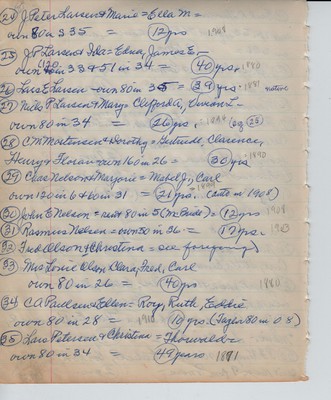 (24) J. Peter Larsen & Marie = Ella M. =
own 80 in S 35 = (12) yrs 1908
(25) J.P. Larsen & Ida = Edna, James E. =
own 120 in 33 & 51 in 34 = (40) yrs. 1880
(26) Lars E. Larsen - own 80 in 35 = (39) yrs = 1881 native
(27) Nils P. Larsen & Mary = Clifford A.,
own 80 in 34 = (26) yrs. 1894 (eg 25)
(28) C.M. Mortensen & Dorothy = Gertrude, Clarence,
Henry & Florian = own 160 in 26 = (30) yrs 1890
(29) Chas Nelson & Marjorie = Mabel J., Carl
own 120 in 6 & 60 in 31 = (21) yrs. 1899 (cate in 1908)
(30) John E. Nelson = rent 80 in 5 (McBride) = (12) yrs 1908
(31) Rasmus Nelson = own 50 in 36 = (17) yrs. 1903
(32) Fred Olson & Christina = see foregoing)
(33) Mrs Louis Olson Clara, Fred, Carl
own 80 in 26 = (40) yrs 1880
(34) C.A. Paulsen & Ellen = Roy, Ruth Eddie
own 80 in 28 = 1910 (10) yrs. (Taxes 80 in 08)
(35) Lars Petersen & Christina = Thorwald =
own 80 in 34 = (49) years 1871